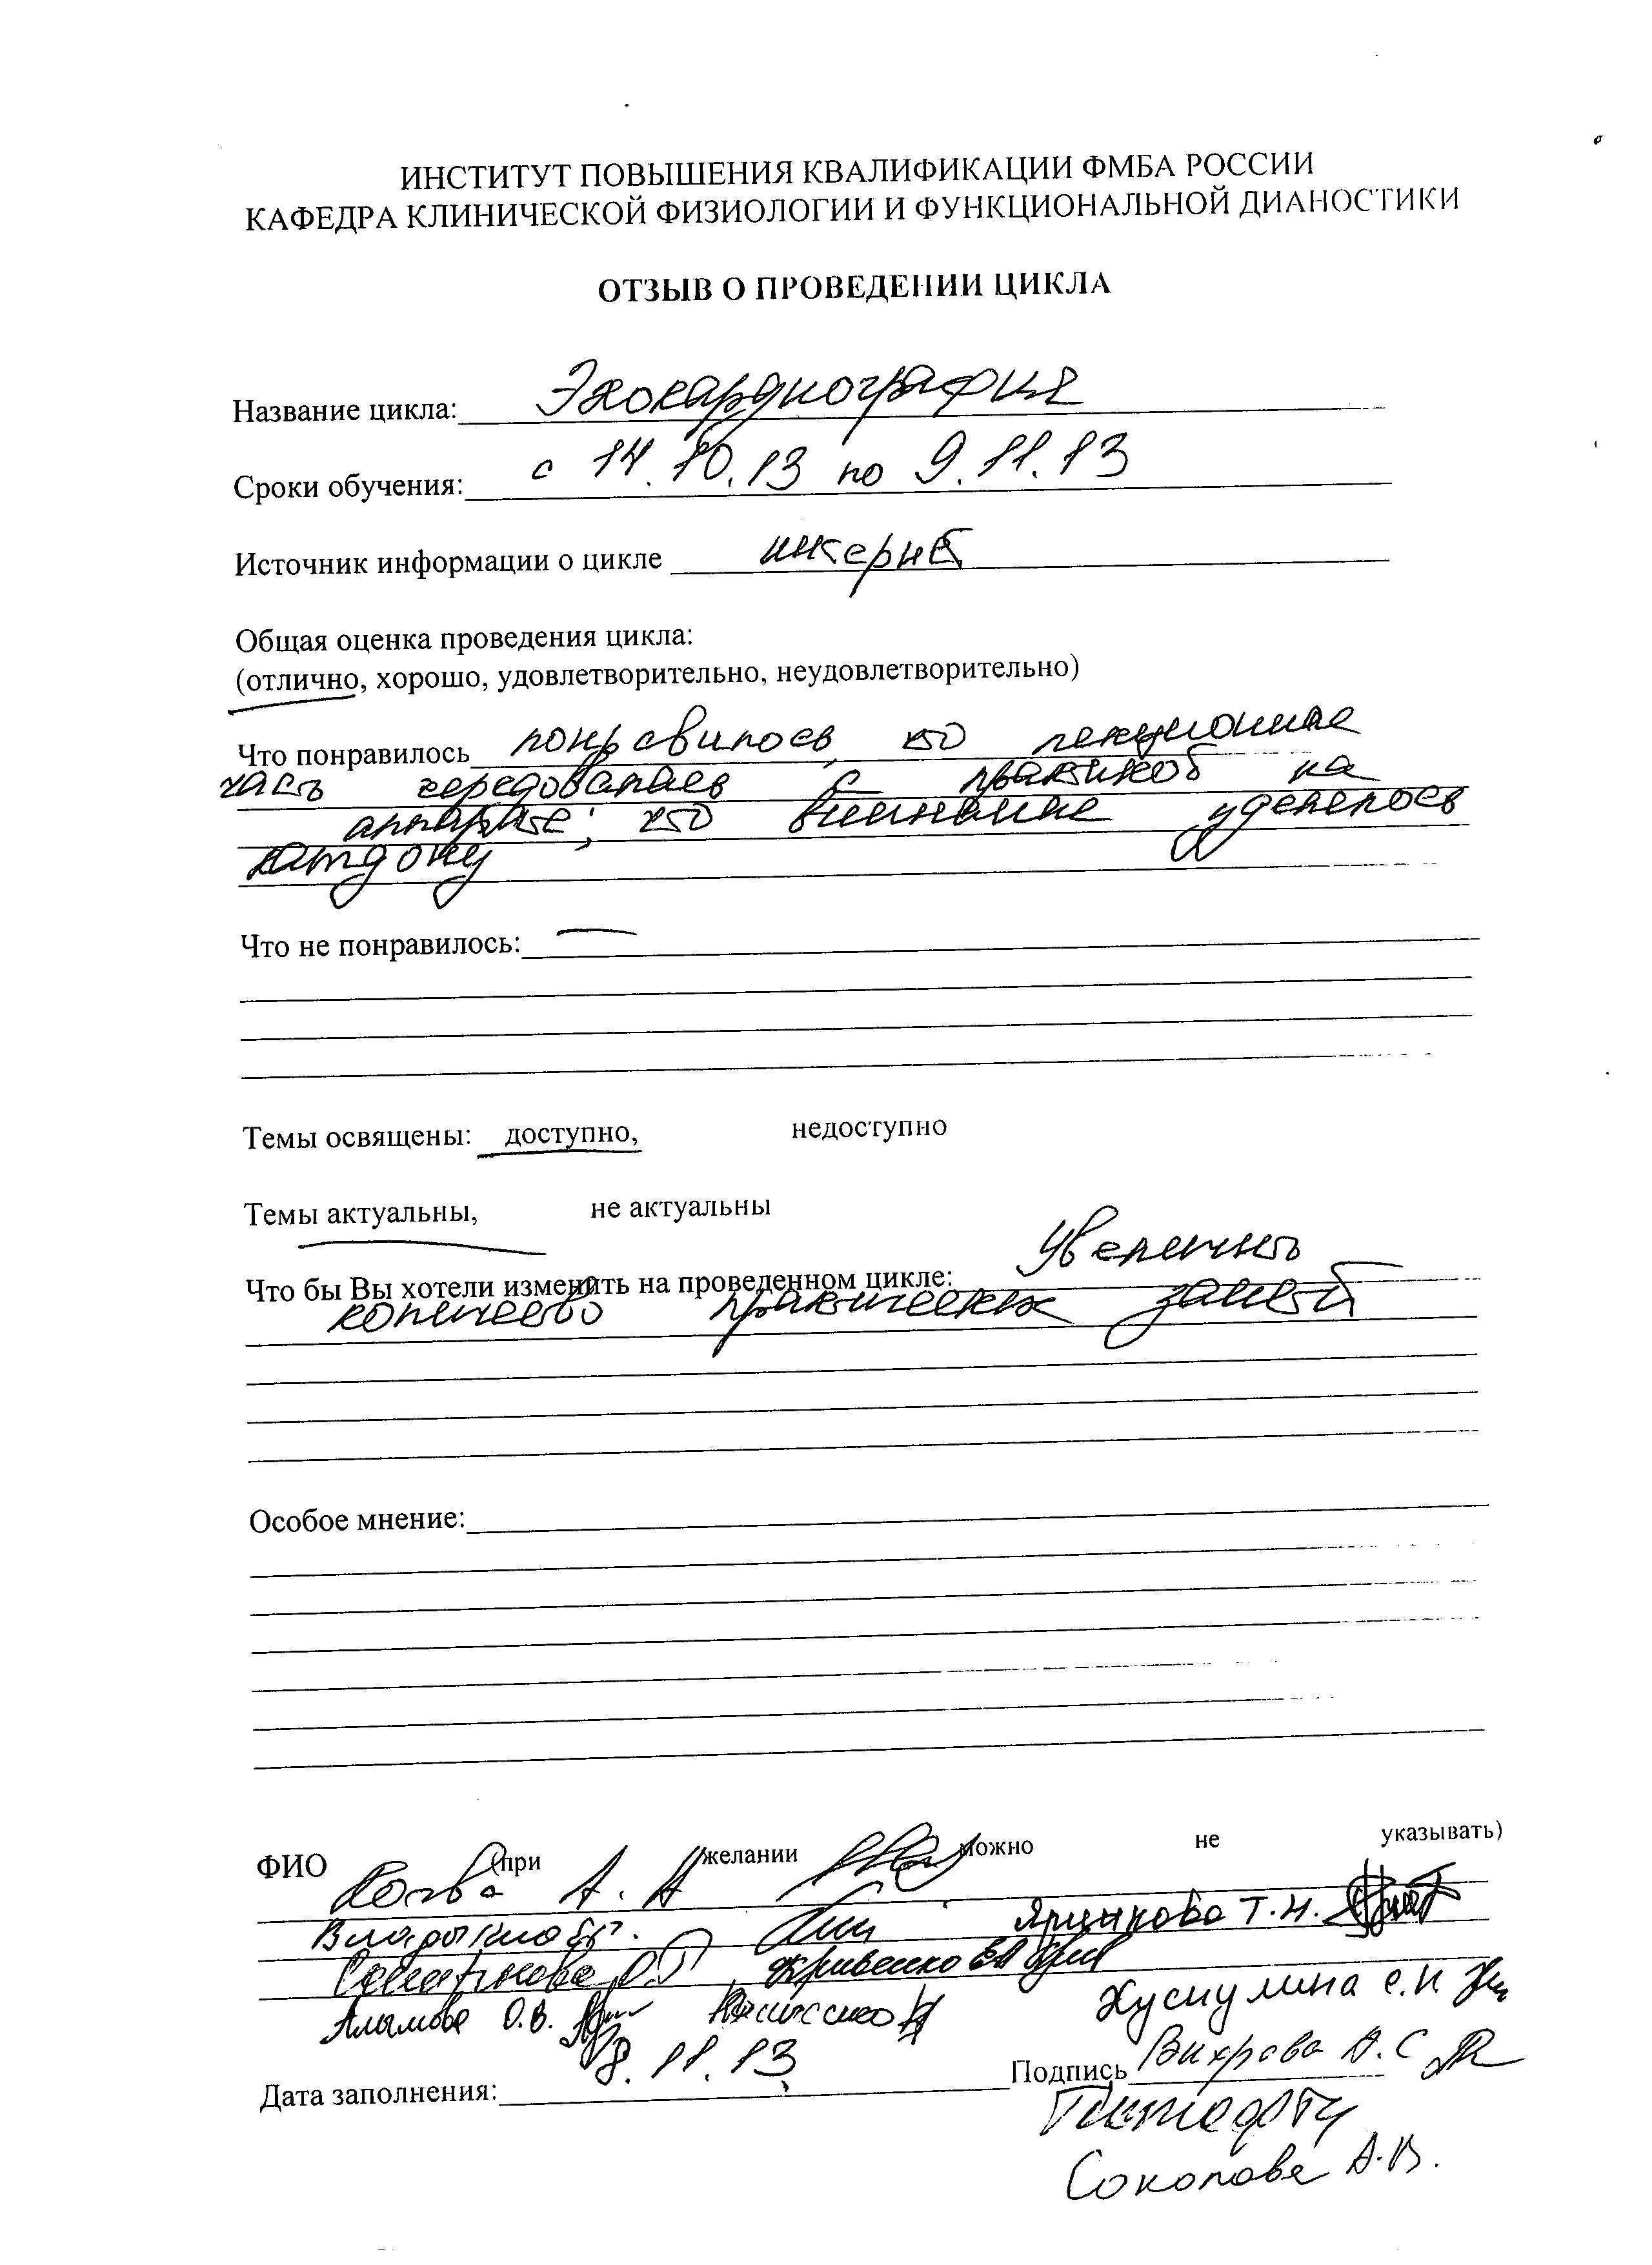 ИНСТИТУТ ПОВЫШЕНИЯ КВАЛИФИКАЦИИ ФМБА РОССИИ
КАФЕДРА КЛИНИЧЕСКОЙ ФИЗИОЛОГИИ И ФУНКЦИОНАЛЬНОЙ ДИАНОСТИКИ
ОТЗЫВ О ПРОВЕДЕНИИ ЦИКЛА
Название цикла: Эхокардиография
Сроки обучения: с 14.10.13 по 9.11.13
Источник информации о цикле интернет
Общая оценка проведения цикла:
(отлично, хорошо, удовлетворительно, неудовлетворительно)
Что понравилось понравилось, что лекционная
часть чередовалась с практикой на
аппарате; что внимание уделялось
каждому
Что не понравилось: —
Темы освящены: доступно, недоступно
Темы актуальны, не актуальны
Что бы Вы хотели изменить на проведенном цикле: Увеличить
количество практических занятий
Особое мнение:
ФИО (при желании можно не указывать)
А. А
Т. Н.
Кривенко ЕА
Алымова О.В. Хуснулина С.Н
Дата заполнения: 8.11.13 Подпись Вихрова А.С
Соколова А.В.